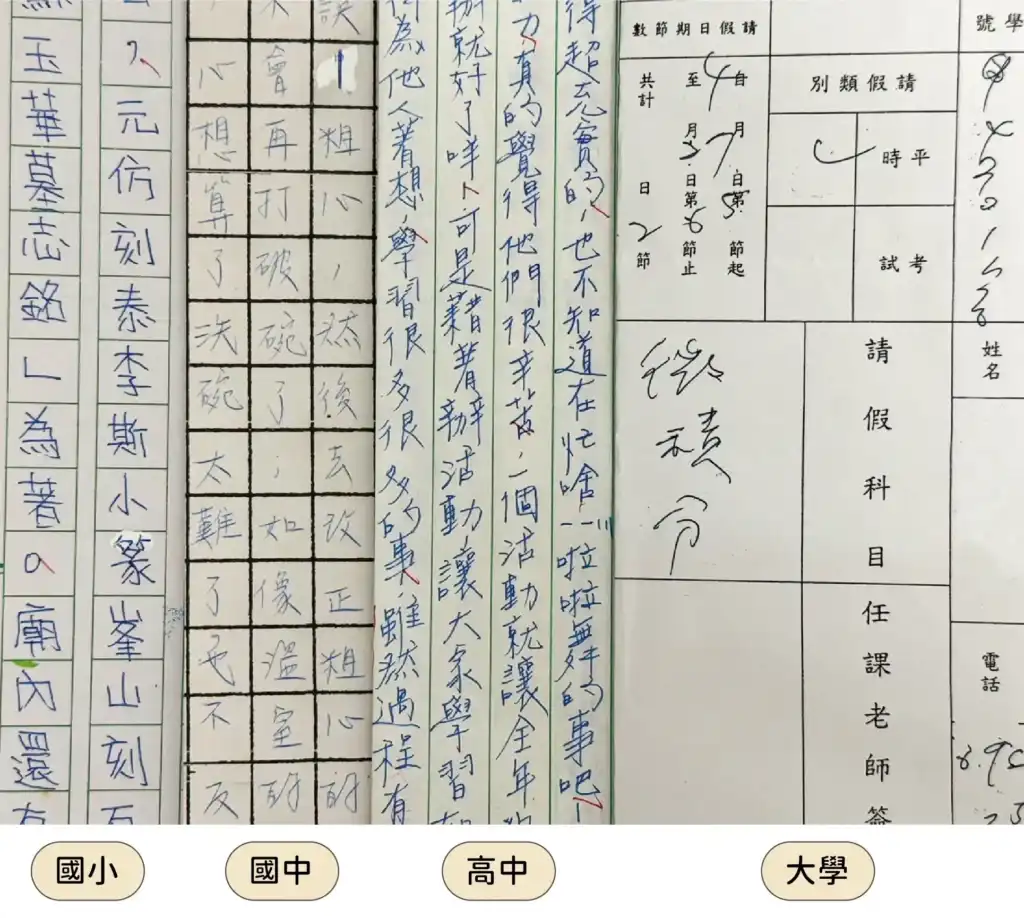 元仿刻泰李斯小篆峯山刻石
玉華墓志銘」為著。廟內還有
誤粗心，然後去改正粗心的
會再打破碗了；如像溫室的
心想算了洗碗太難了也不反
得超充實的，也不知道在忙啥……啦啦無的事吧！
力，真的覺得他們很辛苦，一個活動就讓全年
辦就好了咩、可是藉著辦活動，讓大家學習
為他人著想，學習很多很多的事，雖然過程有
學號
姓名
電話
請假類別
平時
考試
請假日期節數
自4月7日第5節起
至 月 日第6節止
共計 日2節
請假科目
微積分
任課老師簽
國小
國中
高中
大學